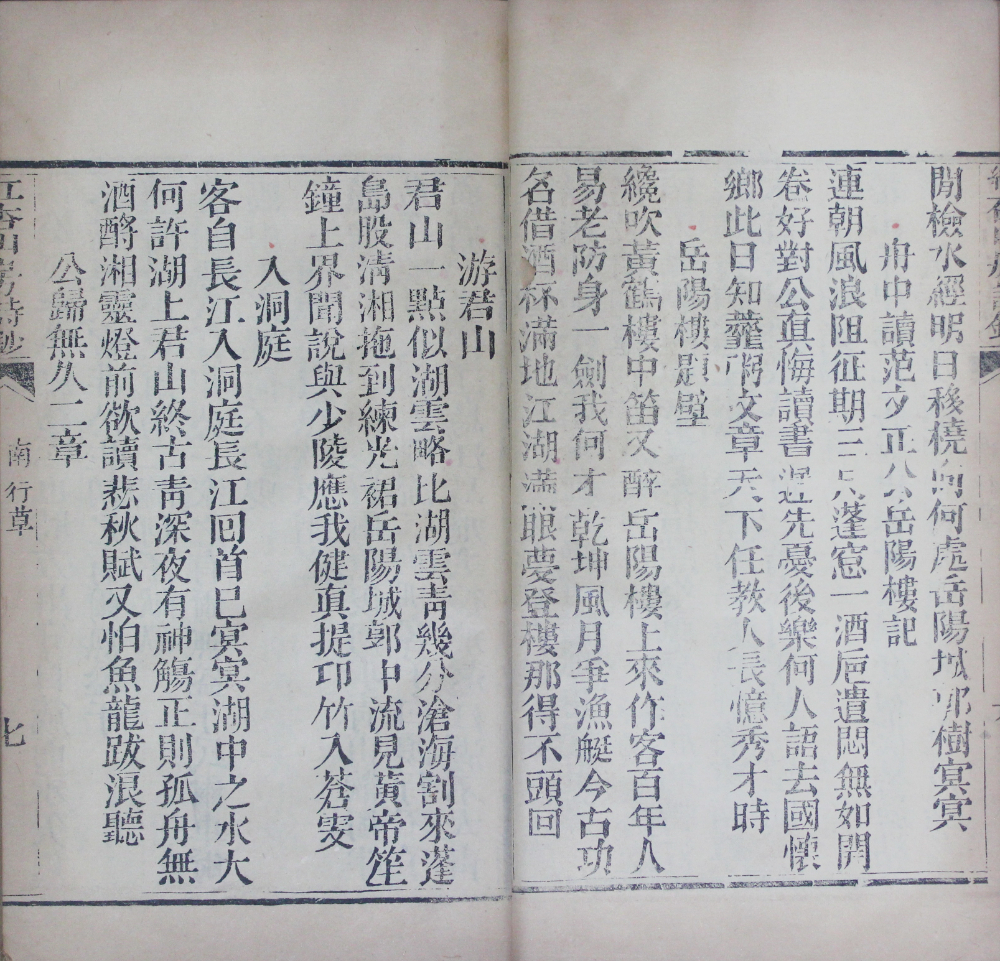 閒檢水經明日移橈向何處岳陽城郭樹冥冥
舟中讀范文正公岳陽樓記
連朝風浪阻征期三尺蓬窓一酒巵遣悶無如開
卷好對公真悔讀書遲先憂後樂何人語去國懷
鄉此日知虀粥文章天下任教人長憶秀才時
岳陽樓題壁
纔吹黃鶴樓中笛又醉岳陽樓上來作客百年人
易老防身一劍我何才乾坤風月爭漁艇今古功
名借酒杯滿地江湖滿眼夢登樓那得不頭回
游君山
君山一點似湖雲略比湖雲靑幾分滄海割來蓬
島股淸湘拖到練光裙岳陽城郭中流見黃帝笙
鐘上界聞說與少陵應我健真提卭竹入蒼雯
入洞庭
客自長江入洞庭長江回首已冥冥湖中之水大
何許湖上君山終古靑深夜有神觴正則孤舟無
酒酹湘靈燈前欲讀悲秋賦又怕魚龍跋浪聽
公歸無久二章
紅杏山房詩鈔
南行草
七